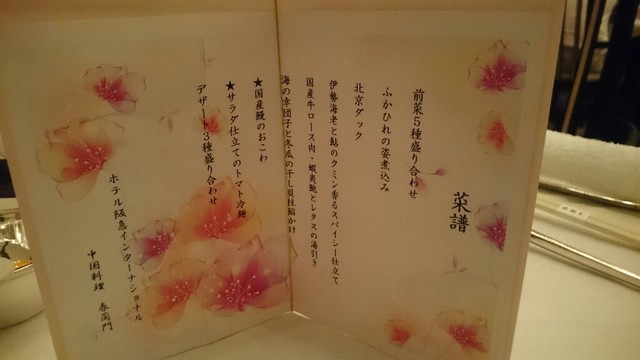 菜譜
前菜5種盛り合わせ
ふかひれの姿煮込み
北京ダック
伊勢海老と鮎のクミン香るスパイシー仕立て
国産牛ロース肉・蝦夷鮑とレタスの湯引き
海の幸団子と冬瓜の干し貝柱餡かけ
★国産鰻のおこわ
★サラダ仕立てのトマト冷麺
デザート3種盛り合わせ
ホテル阪急インターナショナル
中国料理 春蘭門